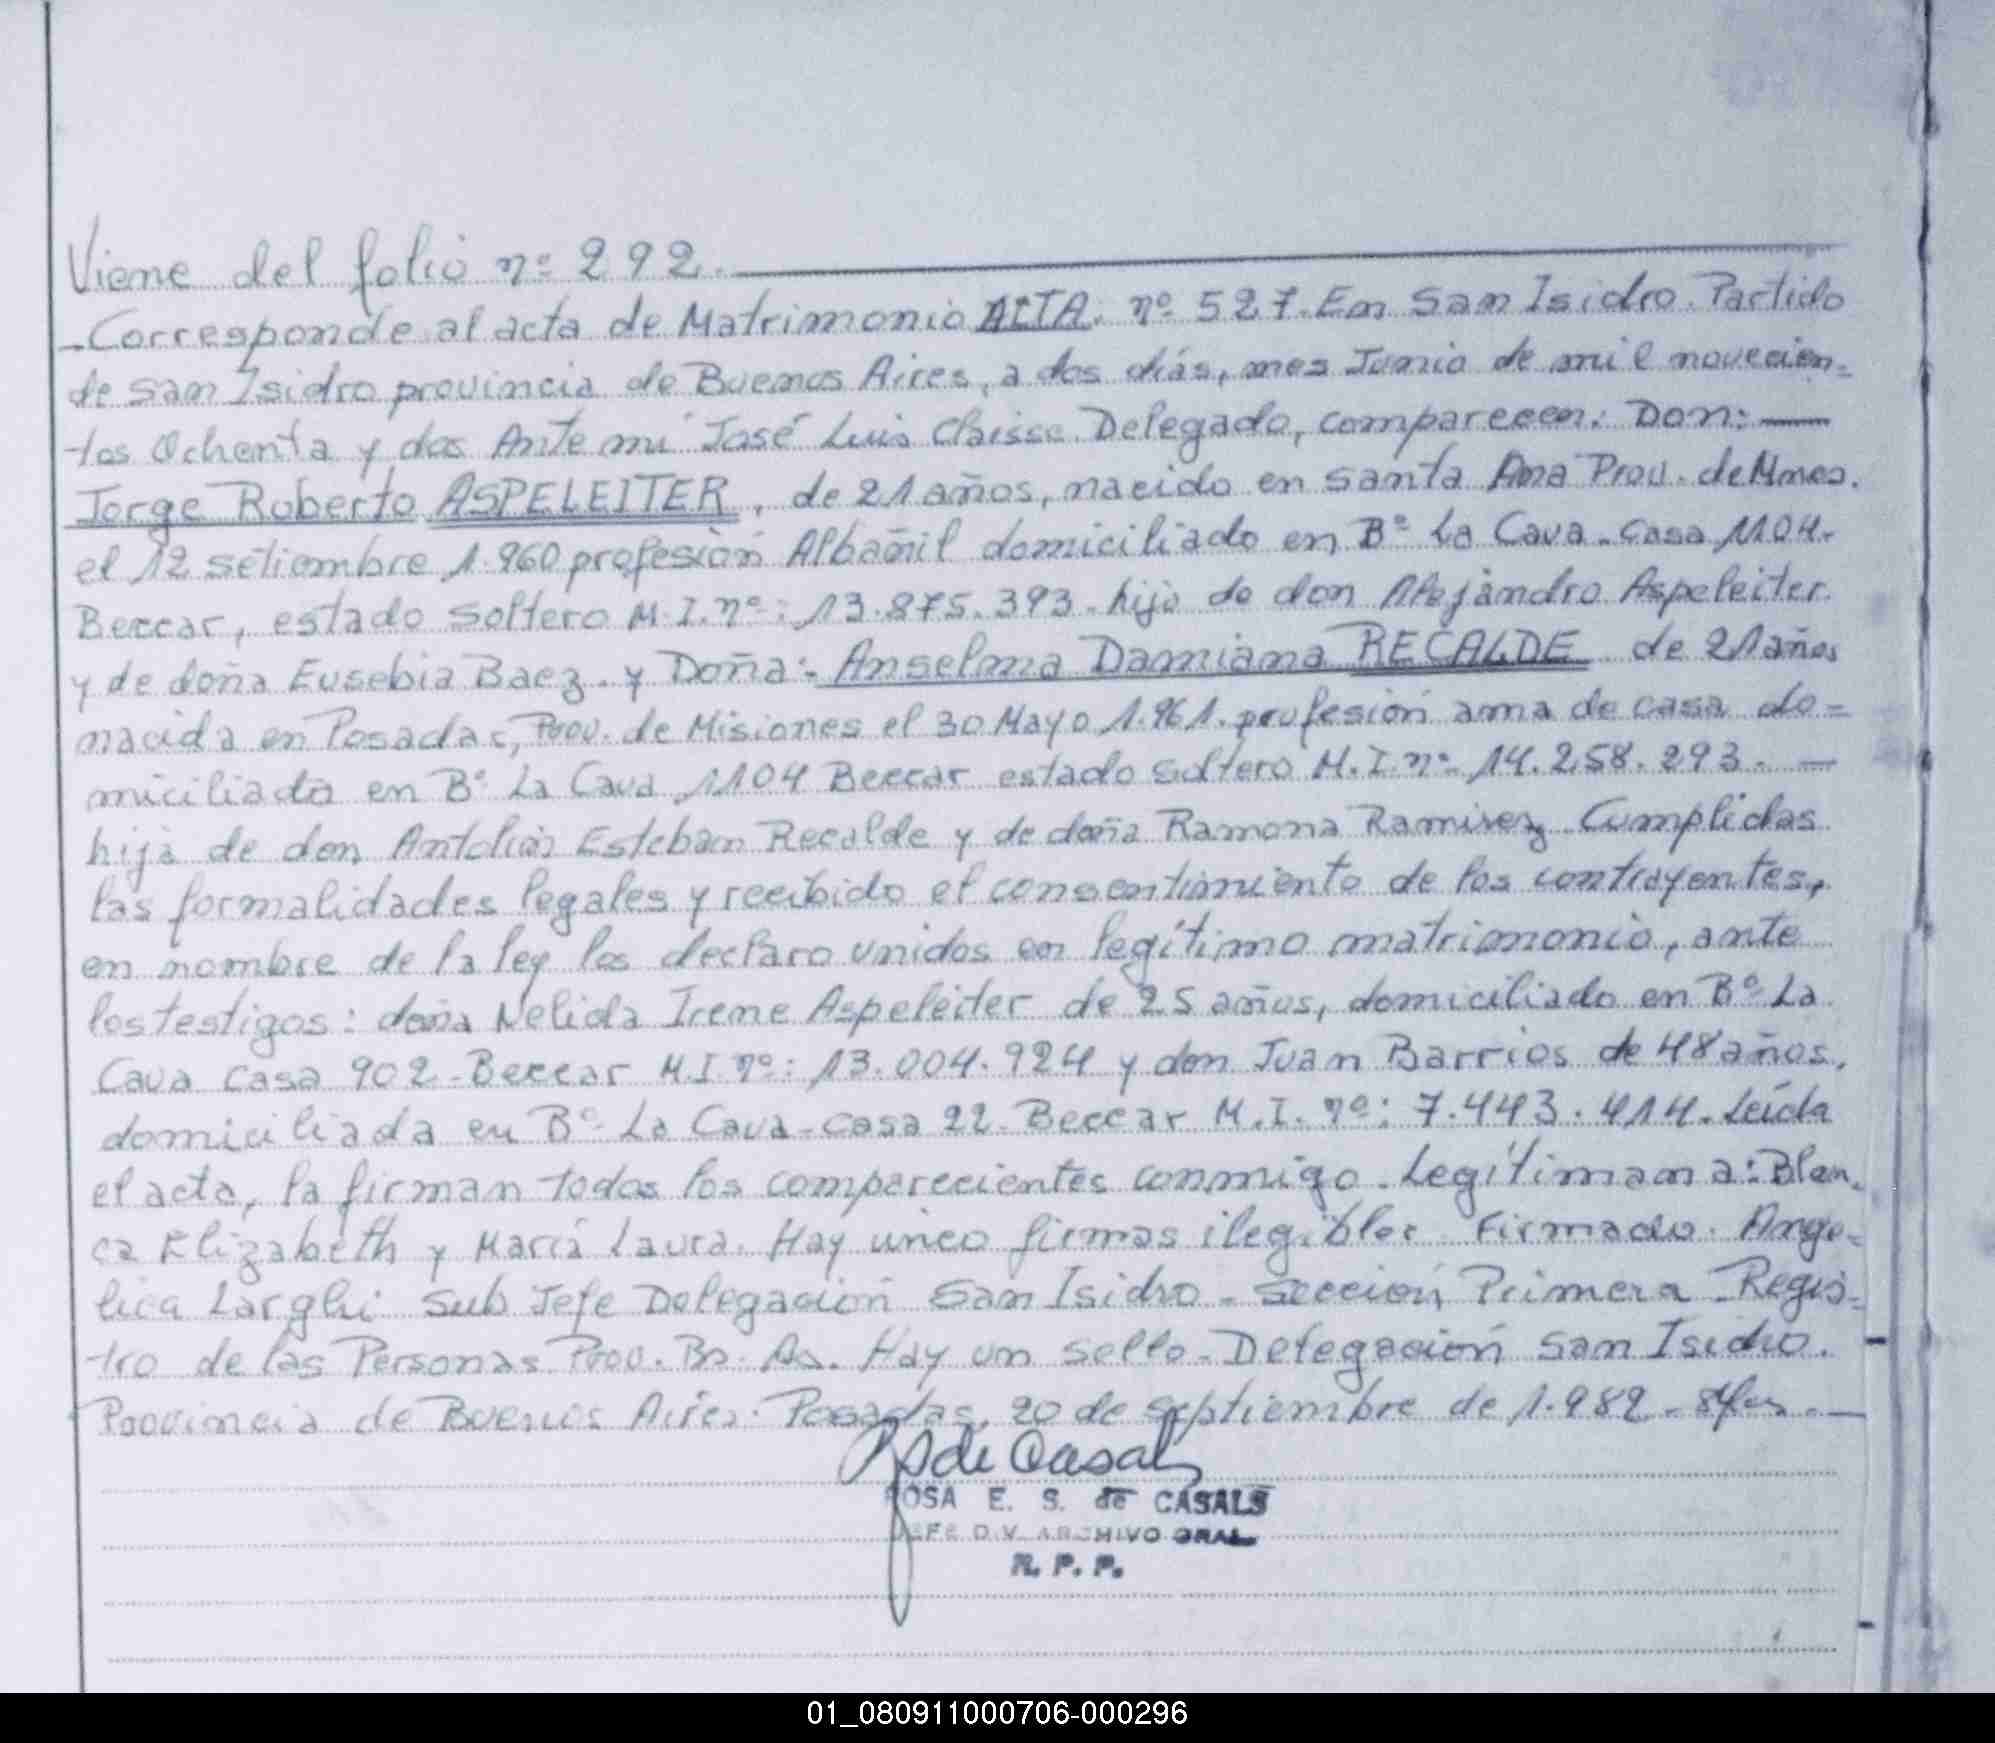 Viene del folio nº 292.
-Corresponde al acta de Matrimonio ACTA. nº 527. En San Isidro. Partido
de San Isidro provincia de Buenos Aires, a dos diás, mes Junio de mil novecien=
tos Ochenta y dos Ante mi José Luis Claisse Delegado, comparecen: Don:
Jorge Roberto ASPELEITER, de 21 años, nacido en Santa Ana Prov. de Mnes.
el 12 setiembre 1.960 profesión Albañil domiciliado en Bº La Cava - casa 1104.
Beccar, estado soltero M.I. nº: 13.875.393 - hijo de don Alejandro Aspeleiter
y de doña Eusebia Baez. y Doña: Anselma Damiana RECALDE de 21 años
nacida en Posadas, Prov. de Misiones el 30 Mayo 1.961. profesión ama de casa do=
miciliado en Bº La Cava 1104 Beccar estado soltero M.I. nº 14.258.293. -
hija de don Antolín Esteban Recalde y de doña Ramona Ramirez Cumplidas
las formalidades legales y recibido el consentimiento de los contrayentes,
en nombre de la ley los declaro unidos en legítimo matrimonio, ante
los testigos: doña Nelida Irene Aspeleiter de 25 años, domiciliado en Bº La
Cava casa 902 - Beccar M.I. nº: 13.004.924 y don Juan Barrios de 48 años.
domiciliada en Bº La Cava - casa 22 - Beccar M.I. nº: 7.443.414. Leída
el acta, la firman todos los comparecientes conmigo. Legítiman a: Blan.
ca Elizabeth y María Laura. Hay cinco firmas ilegibles. Firmado. Ange=
lica Larghi Sub Jefe Delegación San Isidro - Sección Primera - Regis=
tro de las Personas Prov. Bs. As. Hay un sello - Delegación San Isidro.
Provincia de Buenos Aires. Posadas, 20 de septiembre de 1.982 -
de Casals
ROSA E. S. de CASALS
JEFE DIV. ARCHIVO GRAL.
R. P. P.
01_080911000706-000296